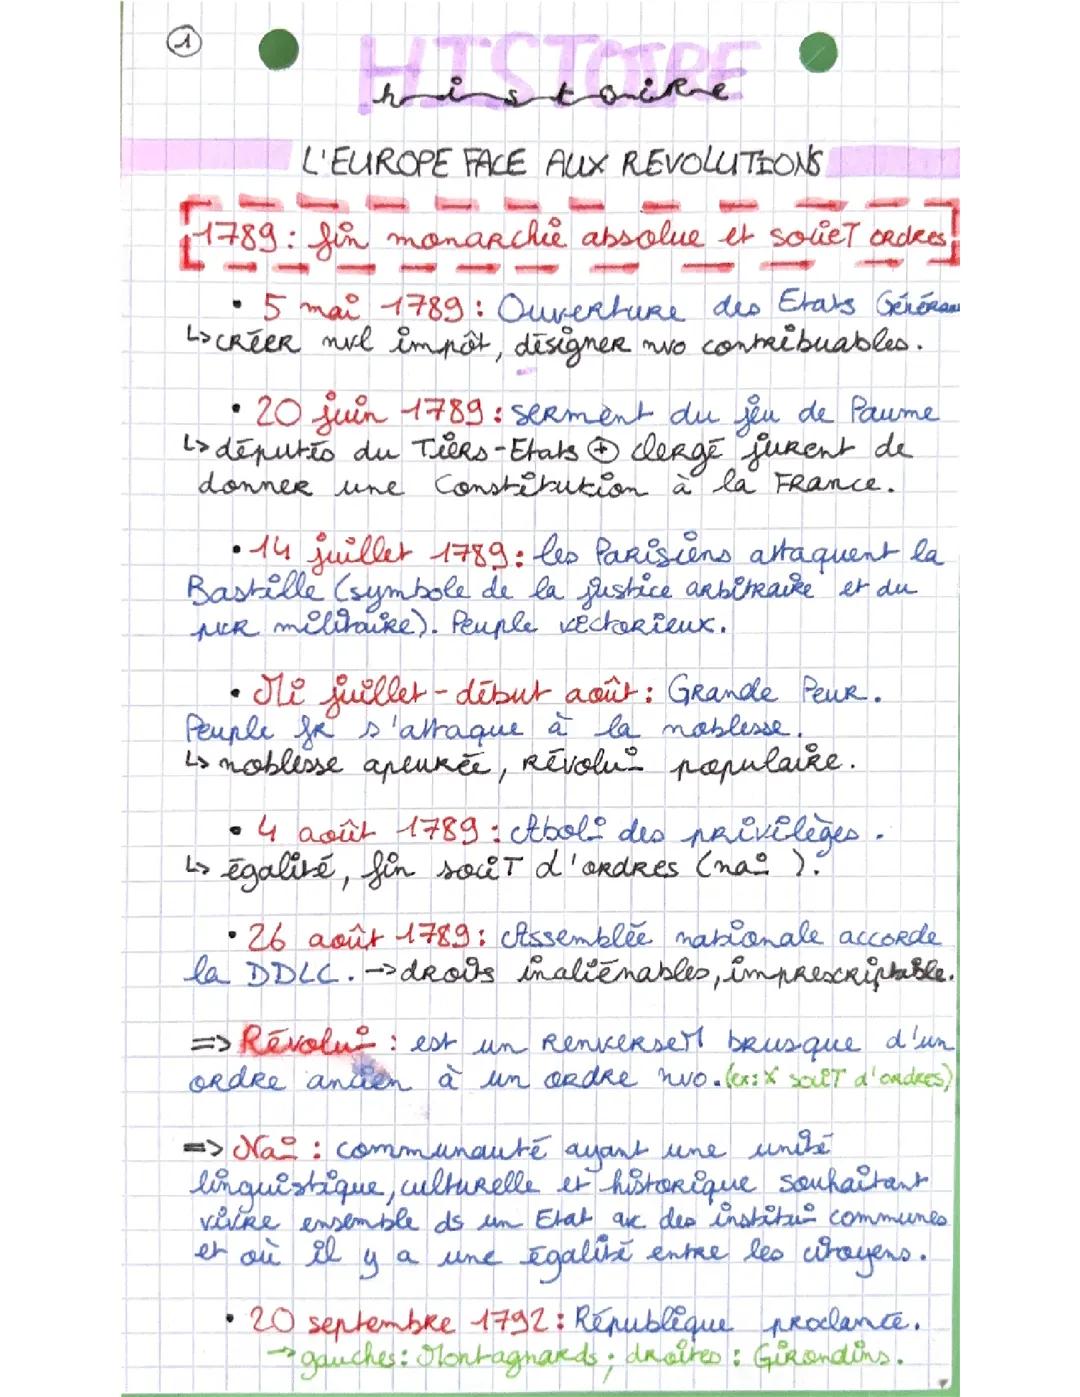 1
HISTOIRE
histoire
L'EUROPE FACE AUX REVOLUTIONS
1789 : fin monarchie absolue et sociéT ordres
• 5 mai 1789 : Ouverture des Etats Généraux
↳ créer nvl impôt, désigner nvo contribuables.
• 20 juin 1789 : serment du jeu de Paume
↳ députés du Tiers-Etats ⊕ clergé jurent de
donner une Constitution à la France.
• 14 juillet 1789 : les Parisiens attaquent la
Bastille (symbole de la justice arbitraire et du
pvr militaire). Peuple victorieux.
• Mi juillet - début août : Grande Peur.
Peuple fr s'attaque à la noblesse.
↳ noblesse apeurée, révolu° populaire.
• 4 août 1789 : Abol° des privilèges.
↳ égalité, fin sociéT d'ordres (na°).
• 26 août 1789 : Assemblée nationale accorde
la DDLC. → droits inaliénables, imprescriptable.
=> Révolu° : est un renverseM brusque d'un
ordre ancien à un ordre nvo. (ex: X sociéT d'ordres)
=> Na° : communauté ayant une unité
linguistique, culturelle et historique souhaitant
vivre ensemble ds un Etat ac des institu° communes
et où il y a une égalité entre les citoyens.
• 20 septembre 1792 : République proclamée.
→ gauches : Montagnards ; droites : Girondins.